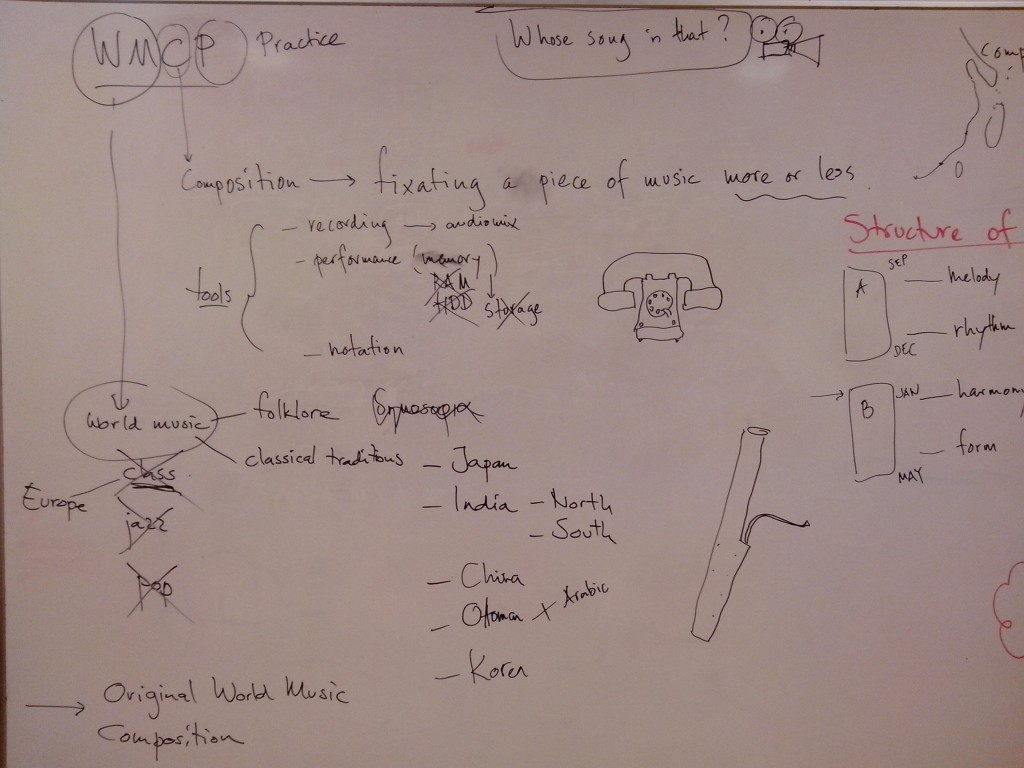 WMCP Practice
Whose song is that?
Comp
Composition → fixating a piece of music more or less
Structure of
tools
- recording → audiomix
- performance (memory)
RAM
HDD
Storage
- notation
A
SEP
melody
rhythm
DEC
B
JAN
harmony
form
MAY
World music
folklore
classical traditions
- Japan
- India - North
- South
- China
- Otoman x Arabic
- Korea
Europe
class
jazz
pop
→ Original World Music
Composition